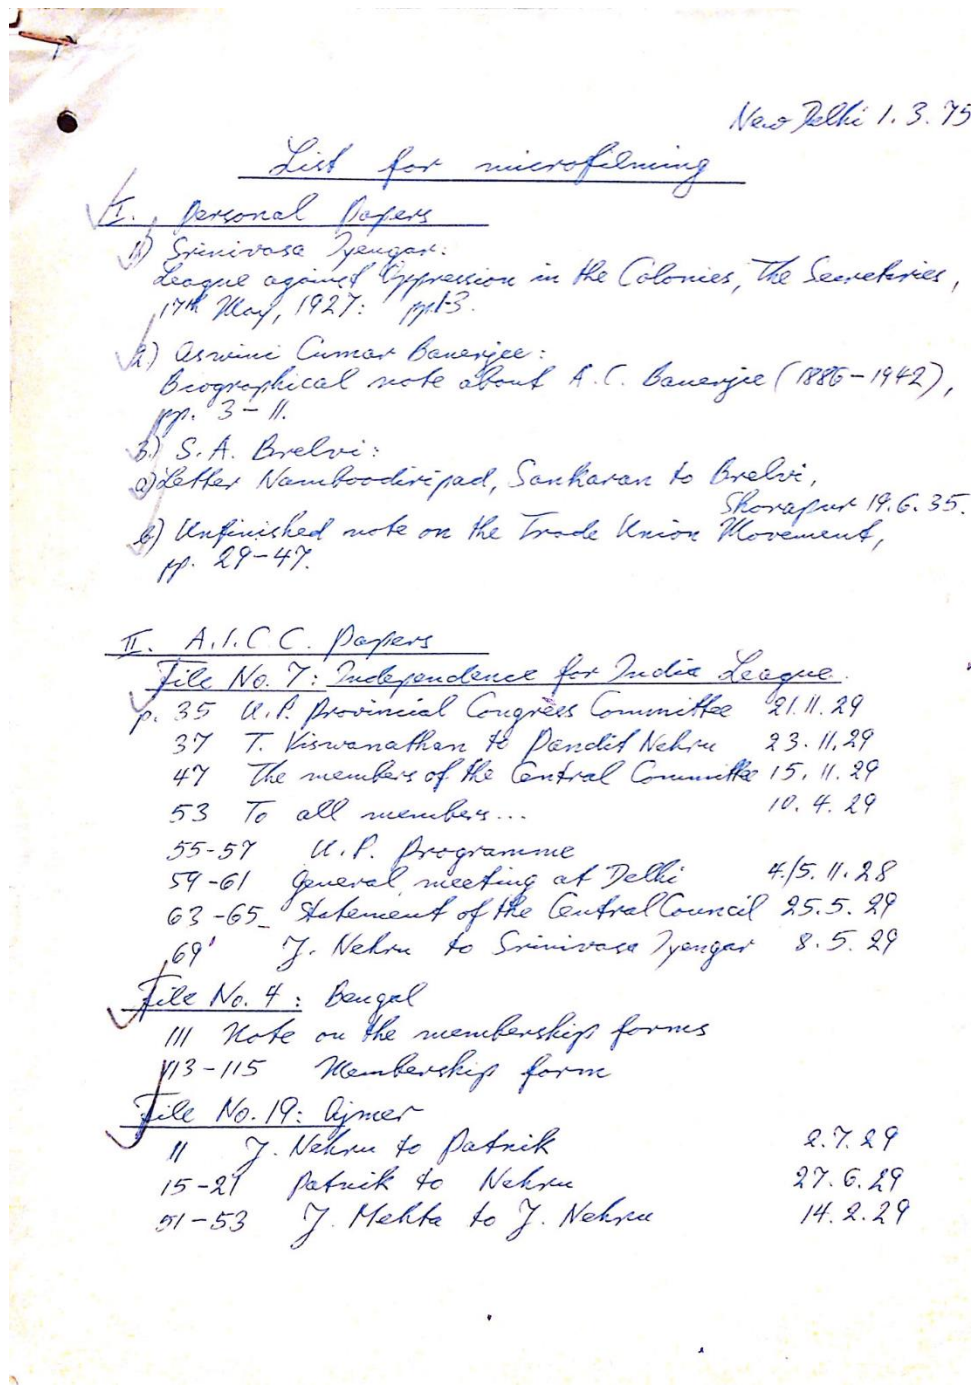 New Delhi 1. 3. 75
List for microfilming
I. Personal Papers
1) Srinivasa Iyengar:
League against Oppression in the Colonies, The Secretaries,
17th May, 1927: pp. 1-3.
2) Aswini Cumar Banerjee:
Biographical note about A. C. Banerjie (1886-1942),
pp. 3-11.
3.) S. A. Brelvi:
a) Letter Namboodiripad, Sankaran to Brelvi,
Shorapur 19. 6. 35.
b) Unfinished note on the Trade Union Movement,
pp. 29-47.
II. A. I. C. C. Papers
File No. 7: Independence for India League.
p. 35 U. P. Provincial Congress Committee 21. 11. 29
37 T. Viswanathan to Pandit Nehru 23. 11. 29
47 The members of the Central Committee 15. 11. 29
53 To all members... 10. 4. 29
55-57 U. P. Programme
59-61 General meeting at Delhi 4./5. 11. 28
63-65 Statement of the Central Council 25. 5. 29
69 J. Nehru to Srinivasa Iyengar 8. 5. 29
File No. 4: Bengal
111 Note on the membership forms
113-115 Membership form
File No. 19: Ajmer
11 J. Nehru to Patnik 2. 7. 29
15-21 Patnik to Nehru 27. 6. 29
51-53 J. Mehta to J. Nehru 14. 2. 29